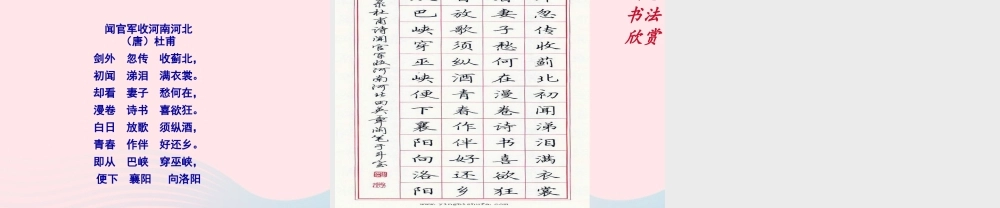 闻官军收河南河北
（唐）杜甫
剑外　忽传　收蓟北，
初闻　涕泪　满衣裳。
却看　妻子　愁何在，
漫卷　诗书　喜欲狂。
白日　放歌　须纵酒，
青春　作伴　好还乡。
即从　巴峡　穿巫峡，
便下　襄阳　向洛阳
忽传收蓟北初闻涕泪满衣裳
妻子愁何在漫卷诗书喜欲狂
放歌须纵酒青春作伴好还乡
巴峡穿巫峡便下襄阳向洛阳
录杜甫诗闻官军收河南河北
书法
欣赏